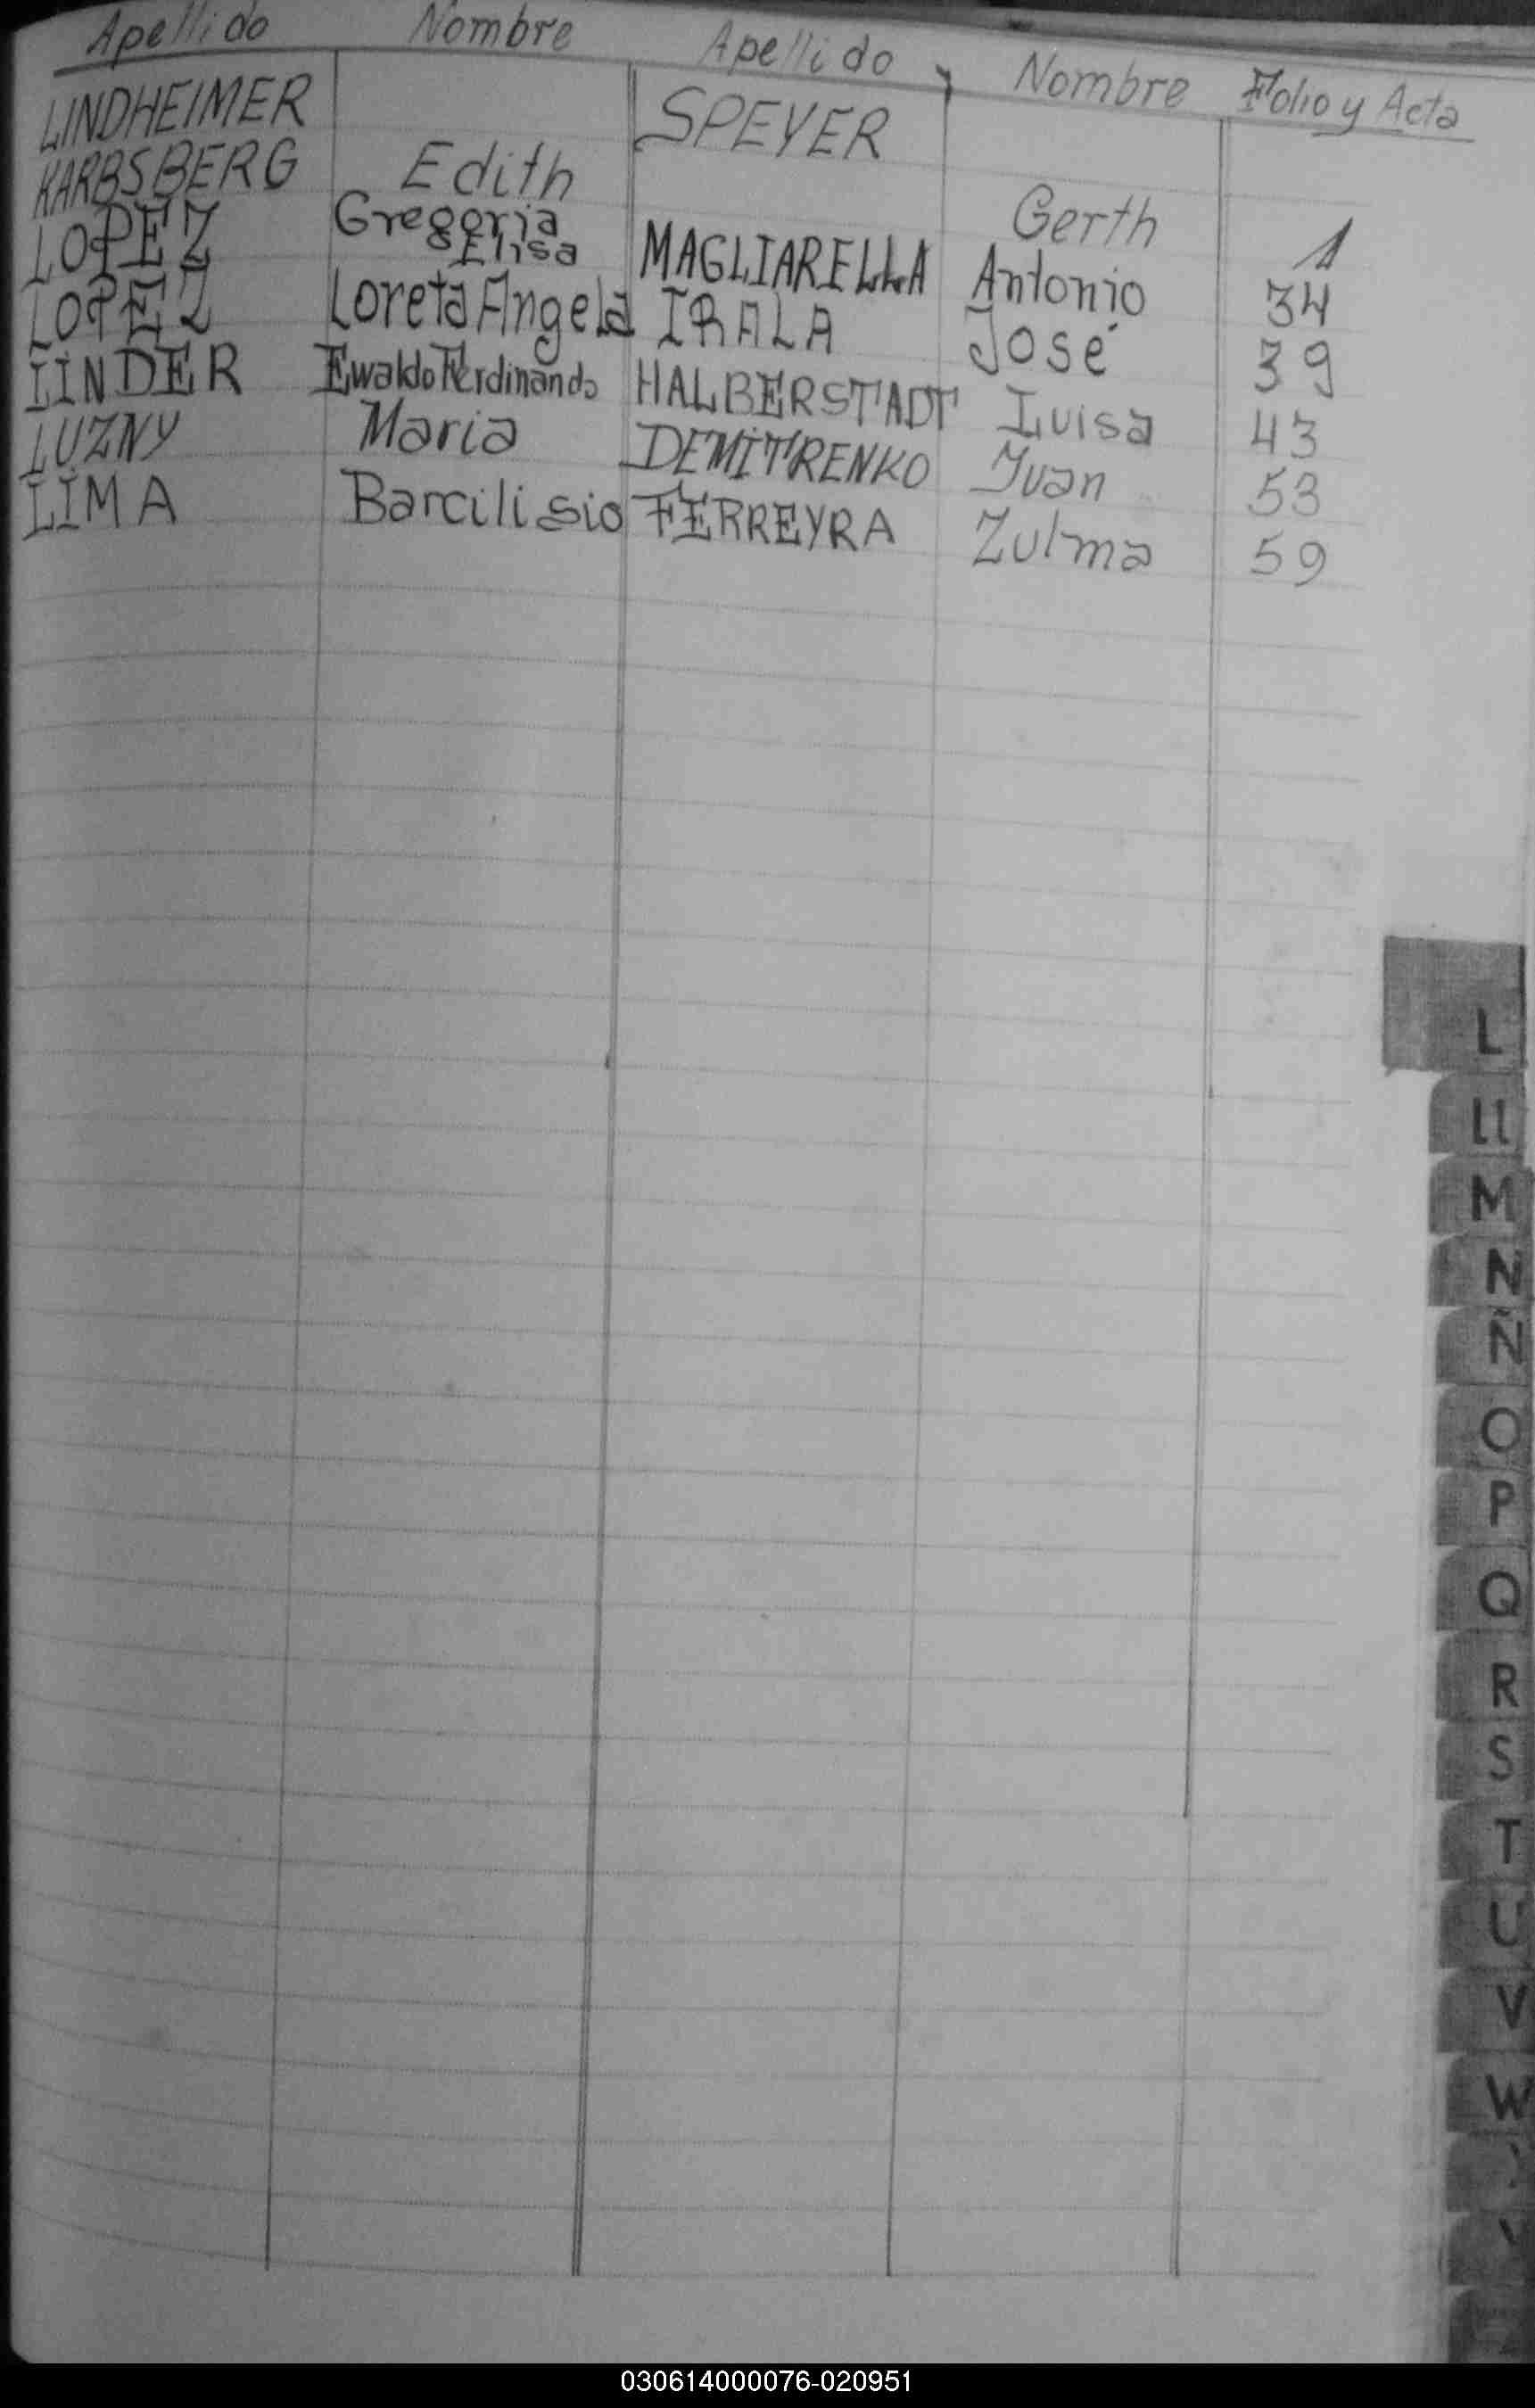 Apellido Nombre Apellido y Nombre Folio y Acta
LINDHEIMER SPEYER
KARBSBERG Edith Gerth 1
LOPEZ Gregoria Elisa MAGLIARELLA Antonio 34
LOPEZ Loreta Angela IRALA José 39
LINDER Ewaldo Ferdinando HALBERSTADT Luisa 43
LUZNY Maria DEMITRENKO Juan 53
LIMA Barcilisio FERREYRA Zulma 59
L
LL
M
N
Ñ
O
P
Q
R
S
T
U
V
W
030614000076-020951